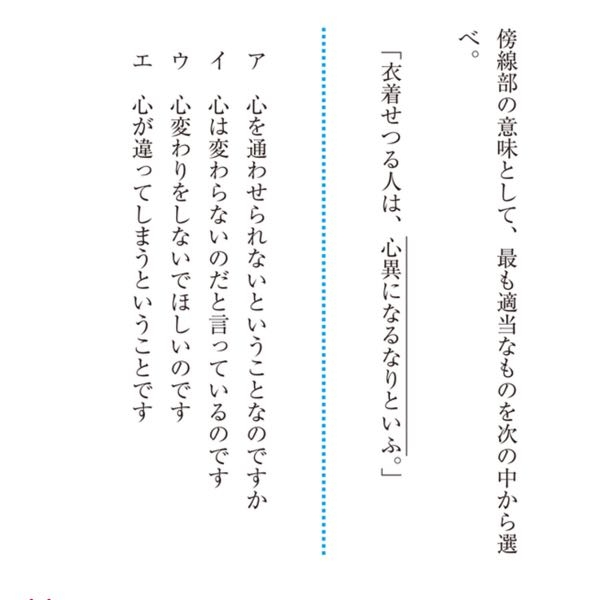 傍線部の意味として、最も適当なものを次の中から選
べ。
「衣着せつる人は、心異になるなりといふ。」
ア　心を通わせられないということなのですか
イ　心は変わらないのだと言っているのです
ウ　心変わりをしないでほしいのです
エ　心が違ってしまうということです